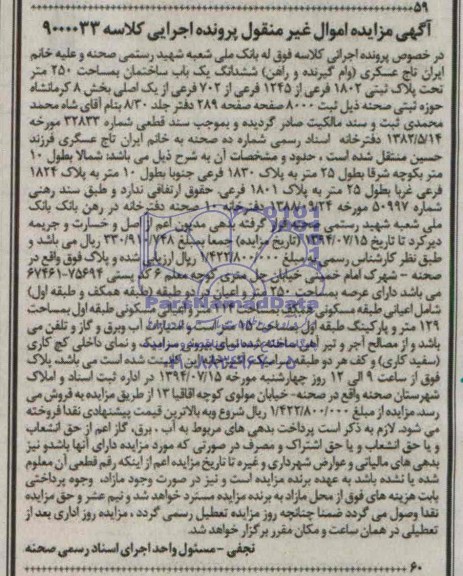 ۵۹
آگهی مزایده اموال غیر منقول پرونده اجرایی کلاسه ۹۰۰۰۰۳۳
در خصوص پرونده اجرائی کلاسه فوق له بانک ملی شعبه شهید رستمی صحنه و علیه خانم
ایران تاج عسکری (وام گیرنده و راهن) ششدانگ یک باب ساختمان بمساحت ۲۵۰ متر
تحت پلاک ثبتی ۱۸۰۲ فرعی از ۱۲۴۵ فرعی از ۷۰۲ فرعی از یک اصلی بخش ۸ کرمانشاه
حوزه ثبتی صحنه ذیل ثبت ۸۰۰۰ صفحه صفحه ۲۸۹ دفتر جلد ۸/۳۰ بنام آقای شاه محمد
محمدی ثبت و سند مالکیت صادر گردیده و بموجب سند قطعی شماره ۳۲۸۳۳ مورخه
۱۳۸۲/۵/۱۴ دفترخانه اسناد رسمی شماره ده صحنه به خانم ایران تاج عسکری فرزند
حسین منتقل شده است ، حدود و مشخصات آن به شرح ذیل می باشد: شمالا بطول ۱۰
متر بکوچه شرقا بطول ۲۵ متر به پلاک ۱۸۳۰ فرعی جنوبا بطول ۱۰ متر به پلاک ۱۸۲۴
فرعی غربا بطول ۲۵ متر به پلاک ۱۸۰۱ فرعی. حقوق ارتفاقی ندارد و طبق سند رهنی
شماره ۵۰۹۹۷ مورخه ۱۳۸۸/۰۹/۲۴ دفترخانه ۱۰ صحنه دفترخانه در رهن بانک بانک
ملی شعبه شهید رستمی قرار گرفته بدهی مدیون اعم از اصل و خسارت و جریمه
دیرکرد تا تاریخ ۱۳۹۴/۰۷/۱۵ (تاریخ مزایده) جمعا بمبلغ ریال می باشد و
طبق نظر کارشناس رسمی به مبلغ ۱/۴۲۲/۸۰۰/۰۰۰ ریال ارزیابی شده و پلاک فوق واقع در
صحنه - شهرک امام خمینی خیابان چل متری کوچه معلم ۶ کد پستی ۷۵۶۹۴-۶۷۴۶۱
می باشد دارای عرصه بمساحت ۲۵۰ متر و اعیان در دو طبقه (طبقه همکف و طبقه اول)
شامل اعیانی طبقه مسکونی همکف بمساحت متر و اعیانی مسکونی طبقه اول بمساحت
۱۲۹ متر و پارکینگ طبقه اول بمساحت ۱۵ متر است و امتیازات آب وبرق و گاز و تلفن می
باشد و از مصالح آجر و تیر آهن ساخته شده نمای بیرونی سرامیک و نمای داخلی کچ کاری
(سفید کاری) و کف هر دو طبقه سرامیک شده است می باشد، پلاک
فوق از ساعت ۹ الی ۱۲ روز چهارشنبه مورخه ۱۳۹۴/۰۷/۱۵ در اداره ثبت اسناد و املاک
شهرستان صحنه واقع در صحنه- خیابان مولوی کوچه اقاقیا ۱۳ از طریق مزایده به فروش می
رسد. مزایده از مبلغ ۱/۴۲۲/۸۰۰/۰۰۰ ریال شروع وبه بالاترین قیمت پیشنهادی نقدا فروخته
می شود. لازم به ذکر است پرداخت بدهی های مربوط به آب ، برق، گاز اعم از حق انشعاب
و یا حق انشعاب و یا حق اشتراک و مصرف در صورتی که مورد مزایده دارای آنها باشدو نیز
بدهی های مالیاتی و عوارض شهرداری و غیره تا تاریخ مزایده اعم از اینکه رقم قطعی آن معلوم
شده یا نشده باشد به عهده برنده مزایده است و نیز در صورت وجود مازاد، وجوه پرداختی
بابت هزینه های فوق از محل مازاد به برنده مزایده مسترد خواهد شد و نیم عشر و حق مزایده
نقدا وصول می گردد ضمنا چنانچه روز مزایده تعطیل رسمی گردد ، مزایده روز اداری بعد از
تعطیلی در همان ساعت و مکان مقرر برگزار خواهد شد.
نجفی - مسئول واحد اجرای اسناد رسمی صحنه
۶۰
ParsNamadData